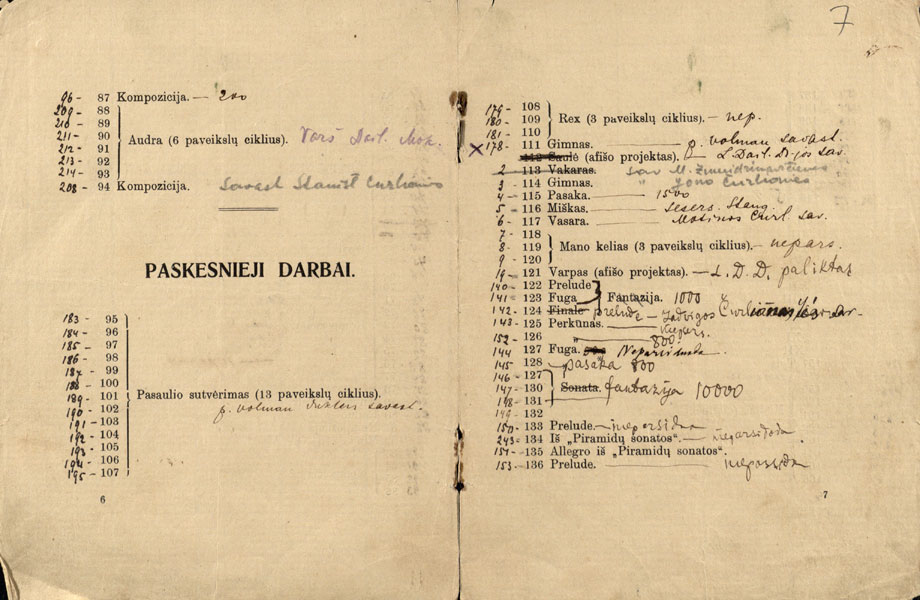 96- 87 Kompozicija. — 200
209- 88
210- 89
211- 90 Audra (6 paveikslų ciklius). Varš Dail. Mok.
212- 91
213- 92
214- 93
208- 94 Kompozicija. Savast Stanisł Čurlionio
PASKESNIEJI DARBAI.
183- 95
184- 96
185- 97
186- 98
187- 99
188- 100
189- 101 Pasaulio sutvėrimas (13 paveikslų ciklius).
190- 102 p. Volman savast.
191- 103
192- 104
193- 105
106
195- 107
6
7
179- 108
180- 109 Rex (3 paveikslų ciklius). — nep.
181- 110
x 178- 111 Gimnas. — p. Volman savast.
112 Saulė (afišo projektas). — L. Dail. D-jos sav.
2- 113 Vakaras. Sav M. Žmuidzinavičienės
3- 114 Gimnas. " Jono Čurlionio
4- 115 Pasaka. — 1500
5- 116 Miškas. — Sesers
6- 117 Vasara. — Motinos Čurl sav.
7- 118
8- 119 Mano kelias (3 paveikslų ciklius). — nepars.
9- 120
121 Varpas (afišo projektas). — L. D. D. paliktas
140- 122 Prelude
141- 123 Fuga Fantazija. 1000
142- 124 Finale prelude — Jadvigos
143- 125 Perkūnas. —
152- 126 " 800
144 127 Fuga.
145 128 pasaka 800
146- 127
147- 130 Sonata. fantazija 10000
148- 131
149- 132
150- 133 Prelude. — neparsiduoda
243- 134 Iš „Piramidų sonatos“. — neparsiduoda
151- 135 Allegro iš „Piramidų sonatos“.
153- 136 Prelude. —
7